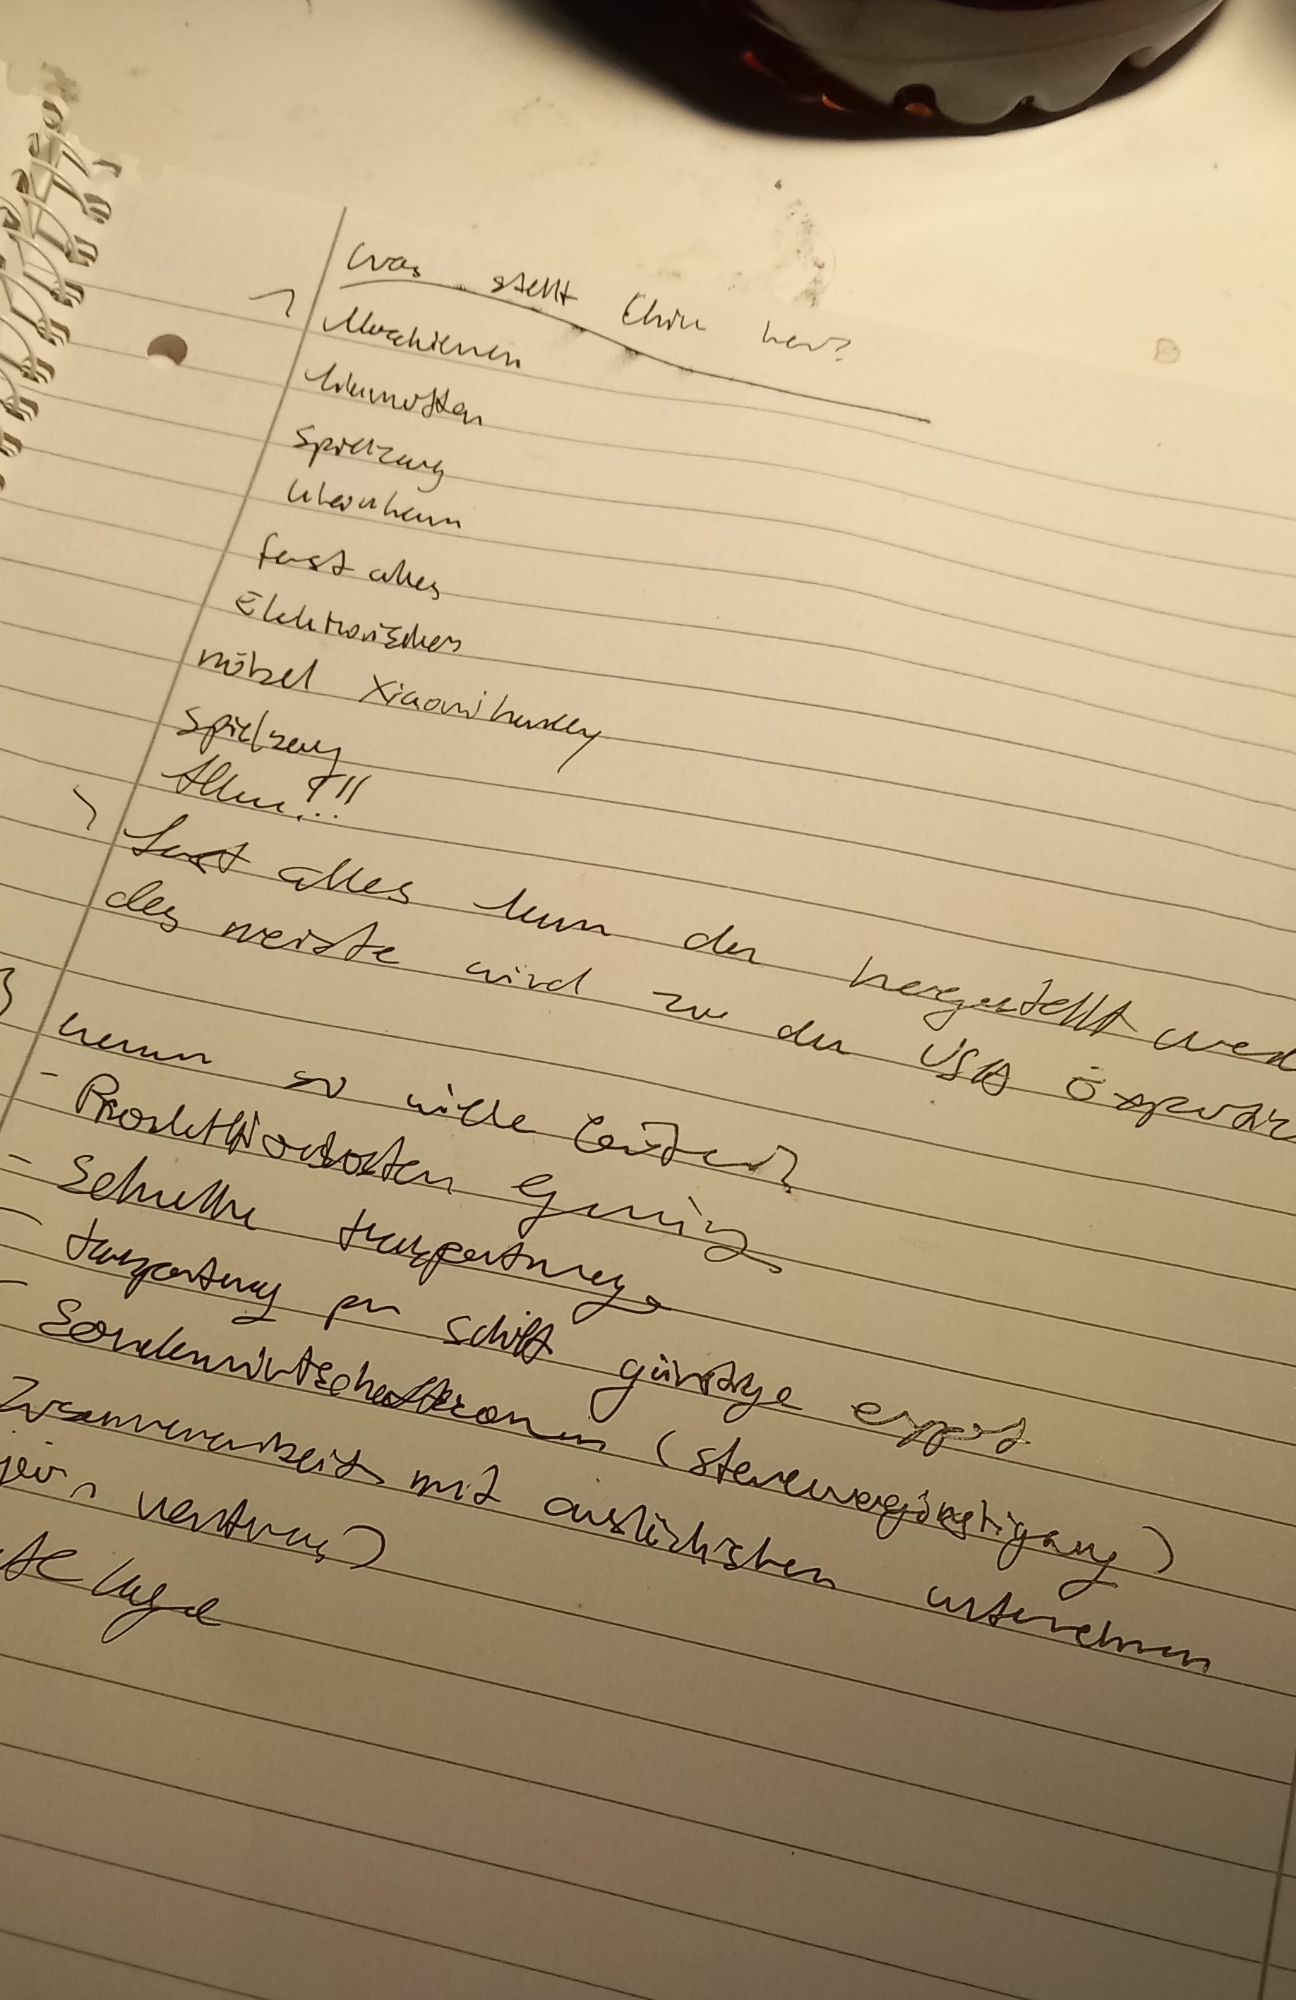 Was stellt Chin her?
1 Maschienen
Spielzeug
fast alles
Elektronisches
möbel Xiaomi handy
spielzeug
Allen!!!
2 fast alles kann da hergestellt werd
des meiste wird zu den USA Exportier
3 warum so viele Leute?
- Produktionskosten Gering
- Schnelle transportung
- transportung per schiff günstige export
- Sonderwirtschaftszonen (steuervergünstigung)
Zusamenarbeit mit auslichischen unternehmen
vertrag)
te lage